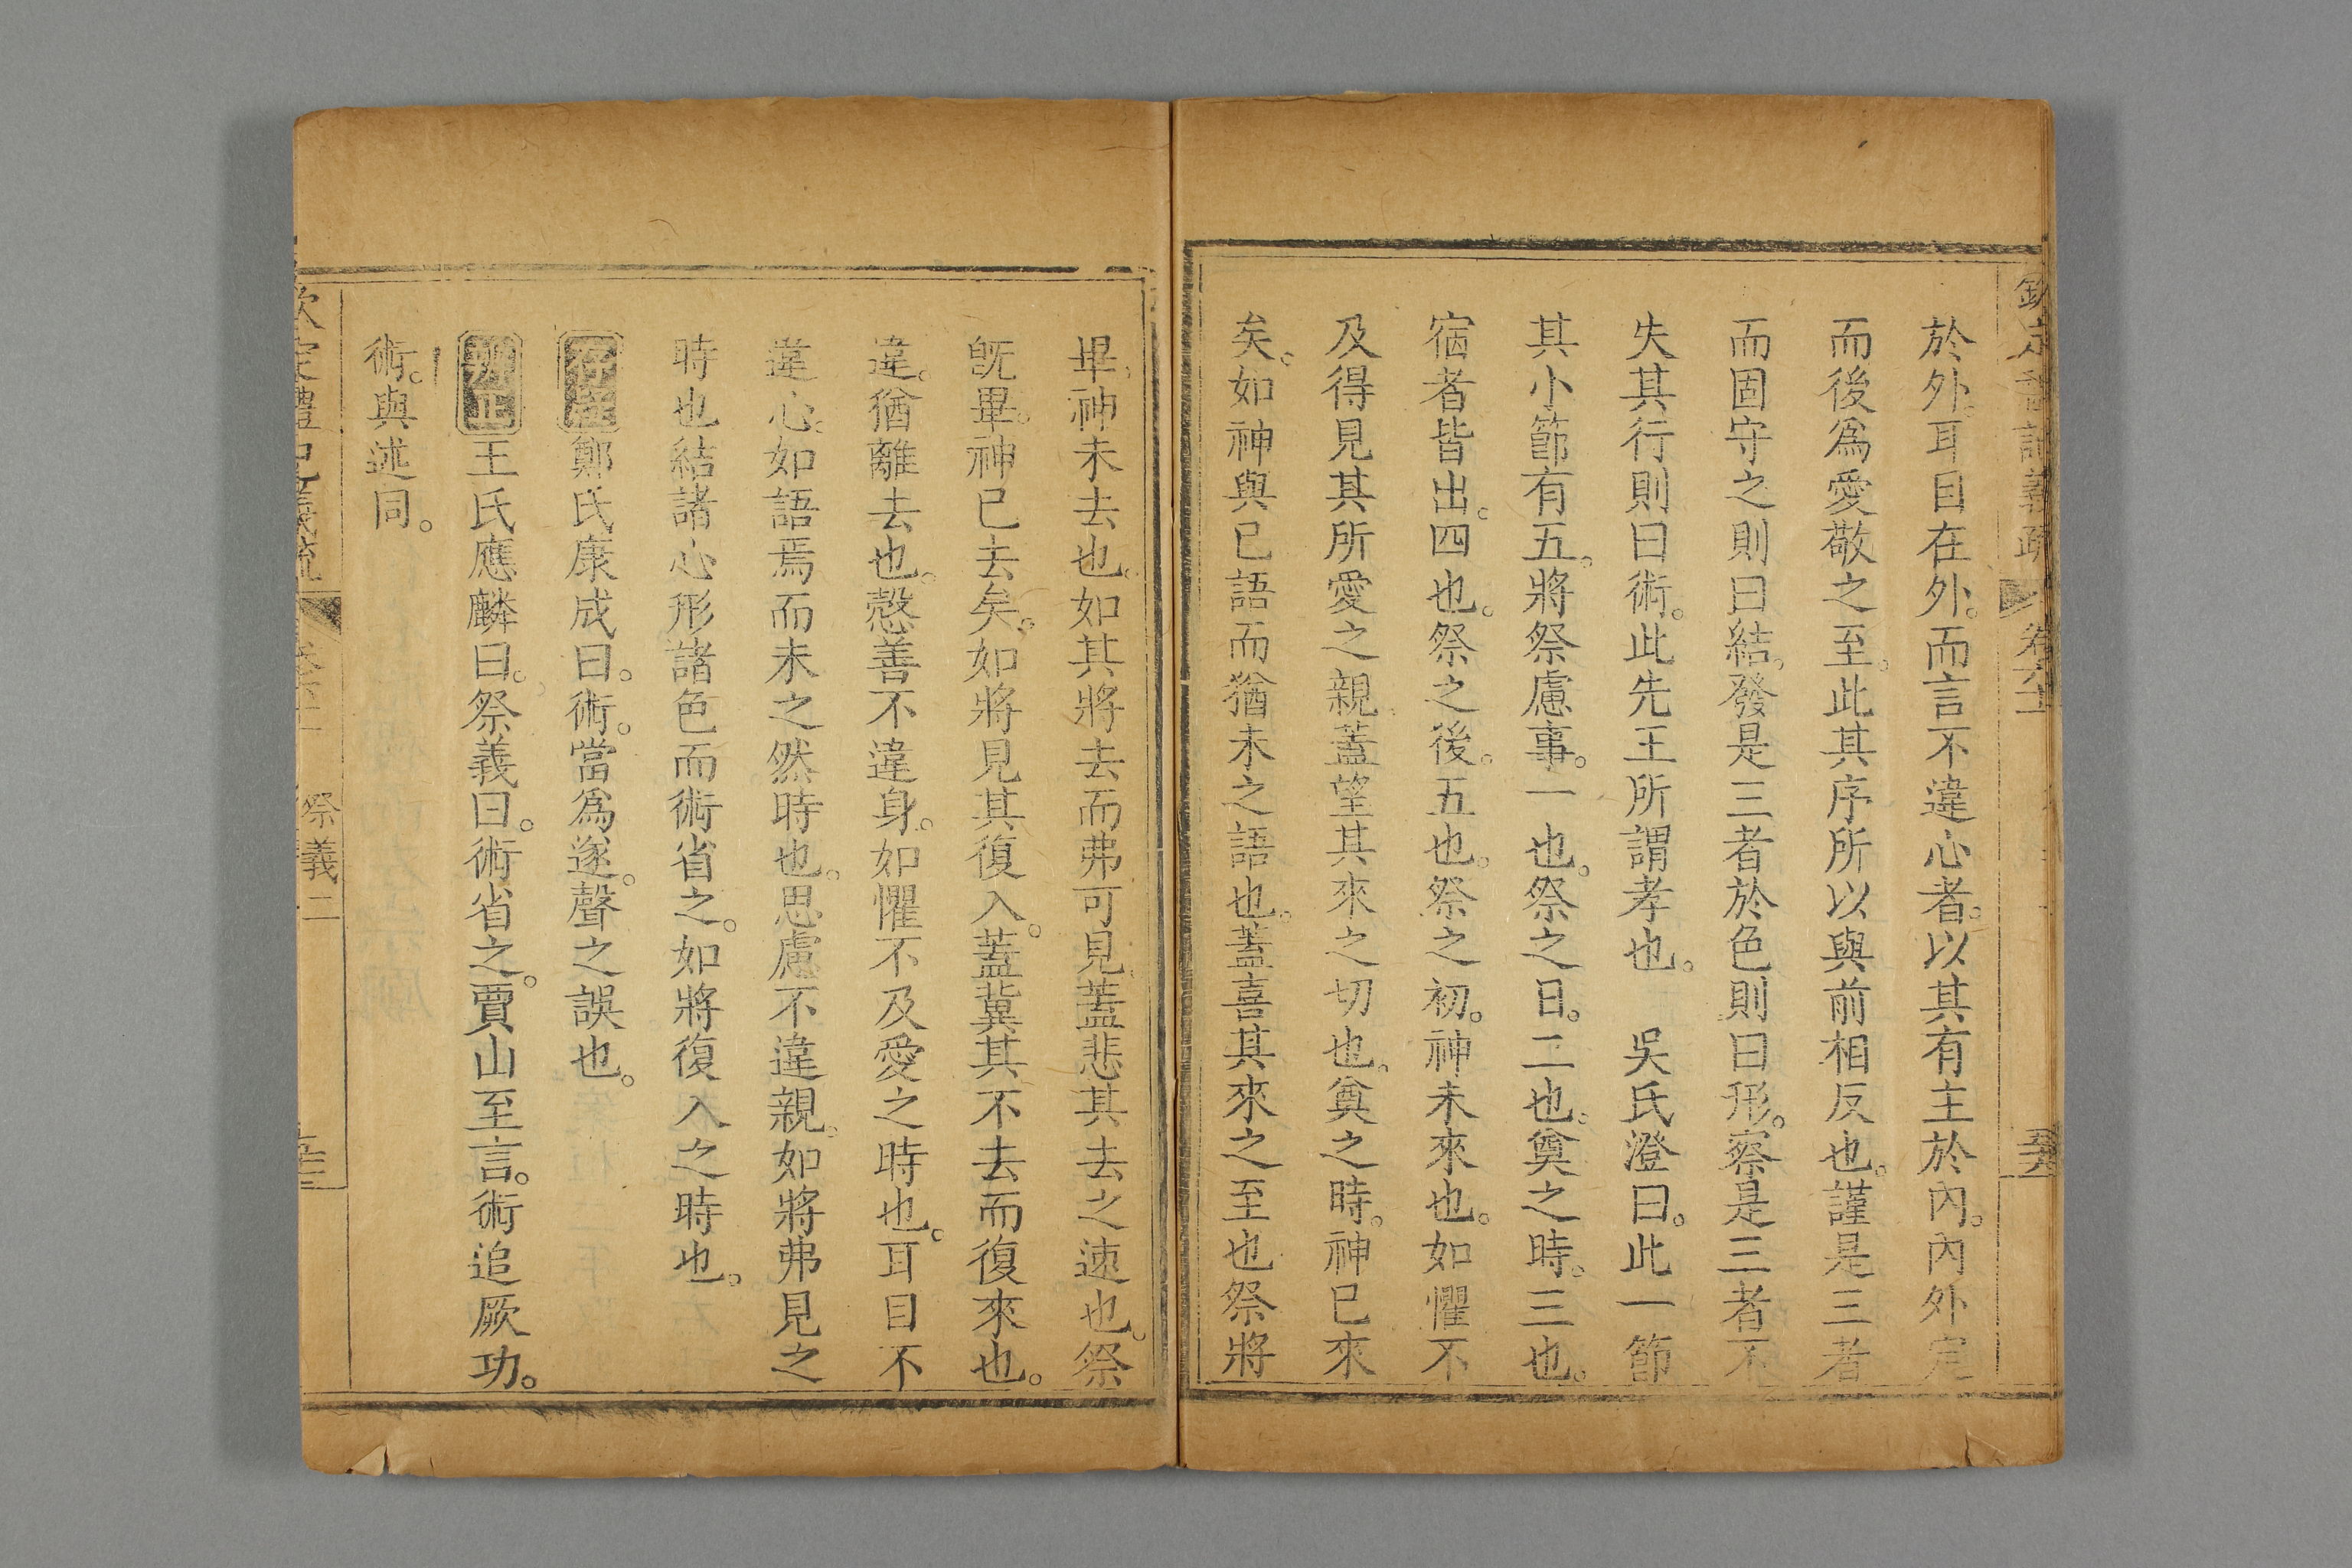 欽定禮記義疏 卷六十一
於外。耳目在外。而言不違心者。以其有主於內。內外定
而後爲愛敬之至。此其序所以與前相反也。謹是三者
而固守之則曰結。發是三者於色則曰形。察是三者不
失其行則曰術。此先王所謂孝也。 吳氏澄曰。此一節
其小節有五。將祭慮事。一也。祭之日。二也。奠之時。三也。
宿者皆出。四也。祭之後。五也。祭之初。神未來也。如懼不
及得見其所愛之親蓋望其來之切也。奠之時。神已來
矣。如神與已語而猶未之語也。蓋喜其來之至也祭將
畢。神未去也。如其將去而弗可見。蓋悲其去之速也。祭
既畢。神已去矣。如將見其復入。蓋冀其不去而復來也。
違。猶離去也。慤善不違身。如懼不及愛之時也。耳目不
違心。如語焉而未之然時也。思慮不違親。如將弗見之
時也結諸心形諸色而術省之。如將復入之時也。
存疑 鄭氏康成曰。術。當爲遂。聲之誤也。
辨正 王氏應麟曰。祭義曰。術省之。賈山至言。術追厥功。
術。與述同。
欽定禮記義疏 祭義二